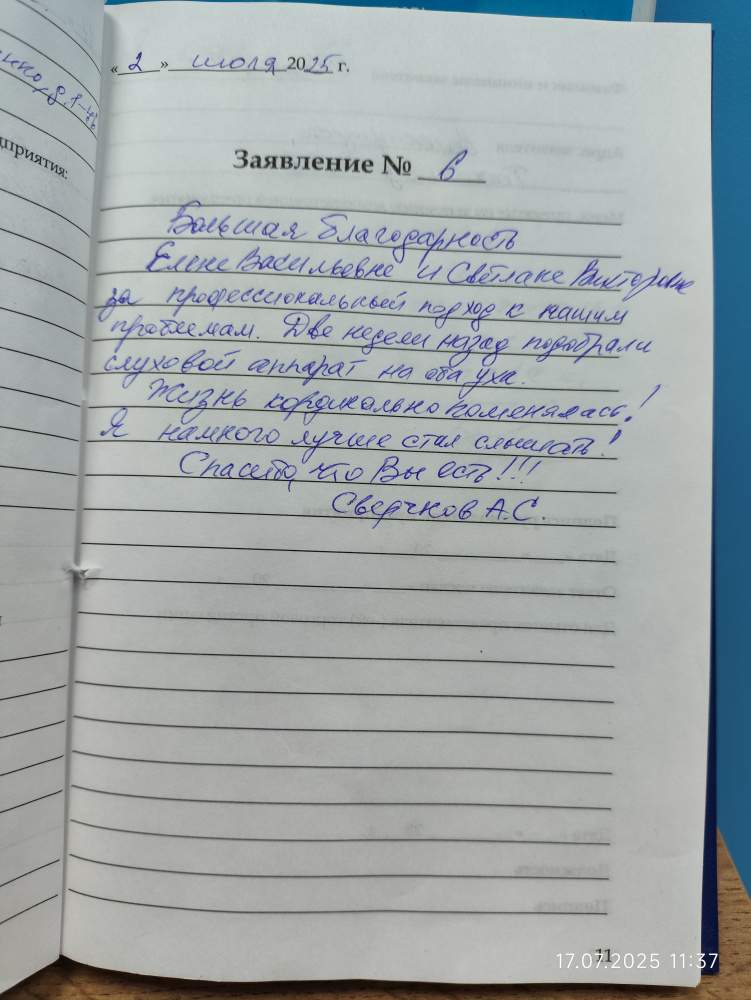 «2» июля 2025 г.
Заявление № 6
Большая благодарность
Елене Васильевне и Светлане Викторовне
за профессиональный подход к нашим
проблемам. Две недели назад подобрали
слуховой аппарат на оба уха.
Жизнь кординально поменялась!
Я намного лучше стал слышать!
Спасибо, что Вы есть!!!
Сверчков А.С.
приятия:
11
17.07.2025 11:37